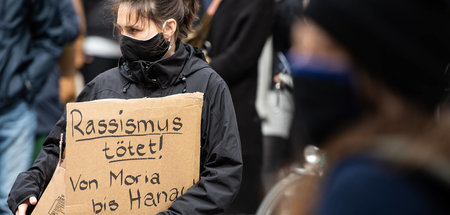 Rassismus
tötet!
Von Moria
bis Hanau